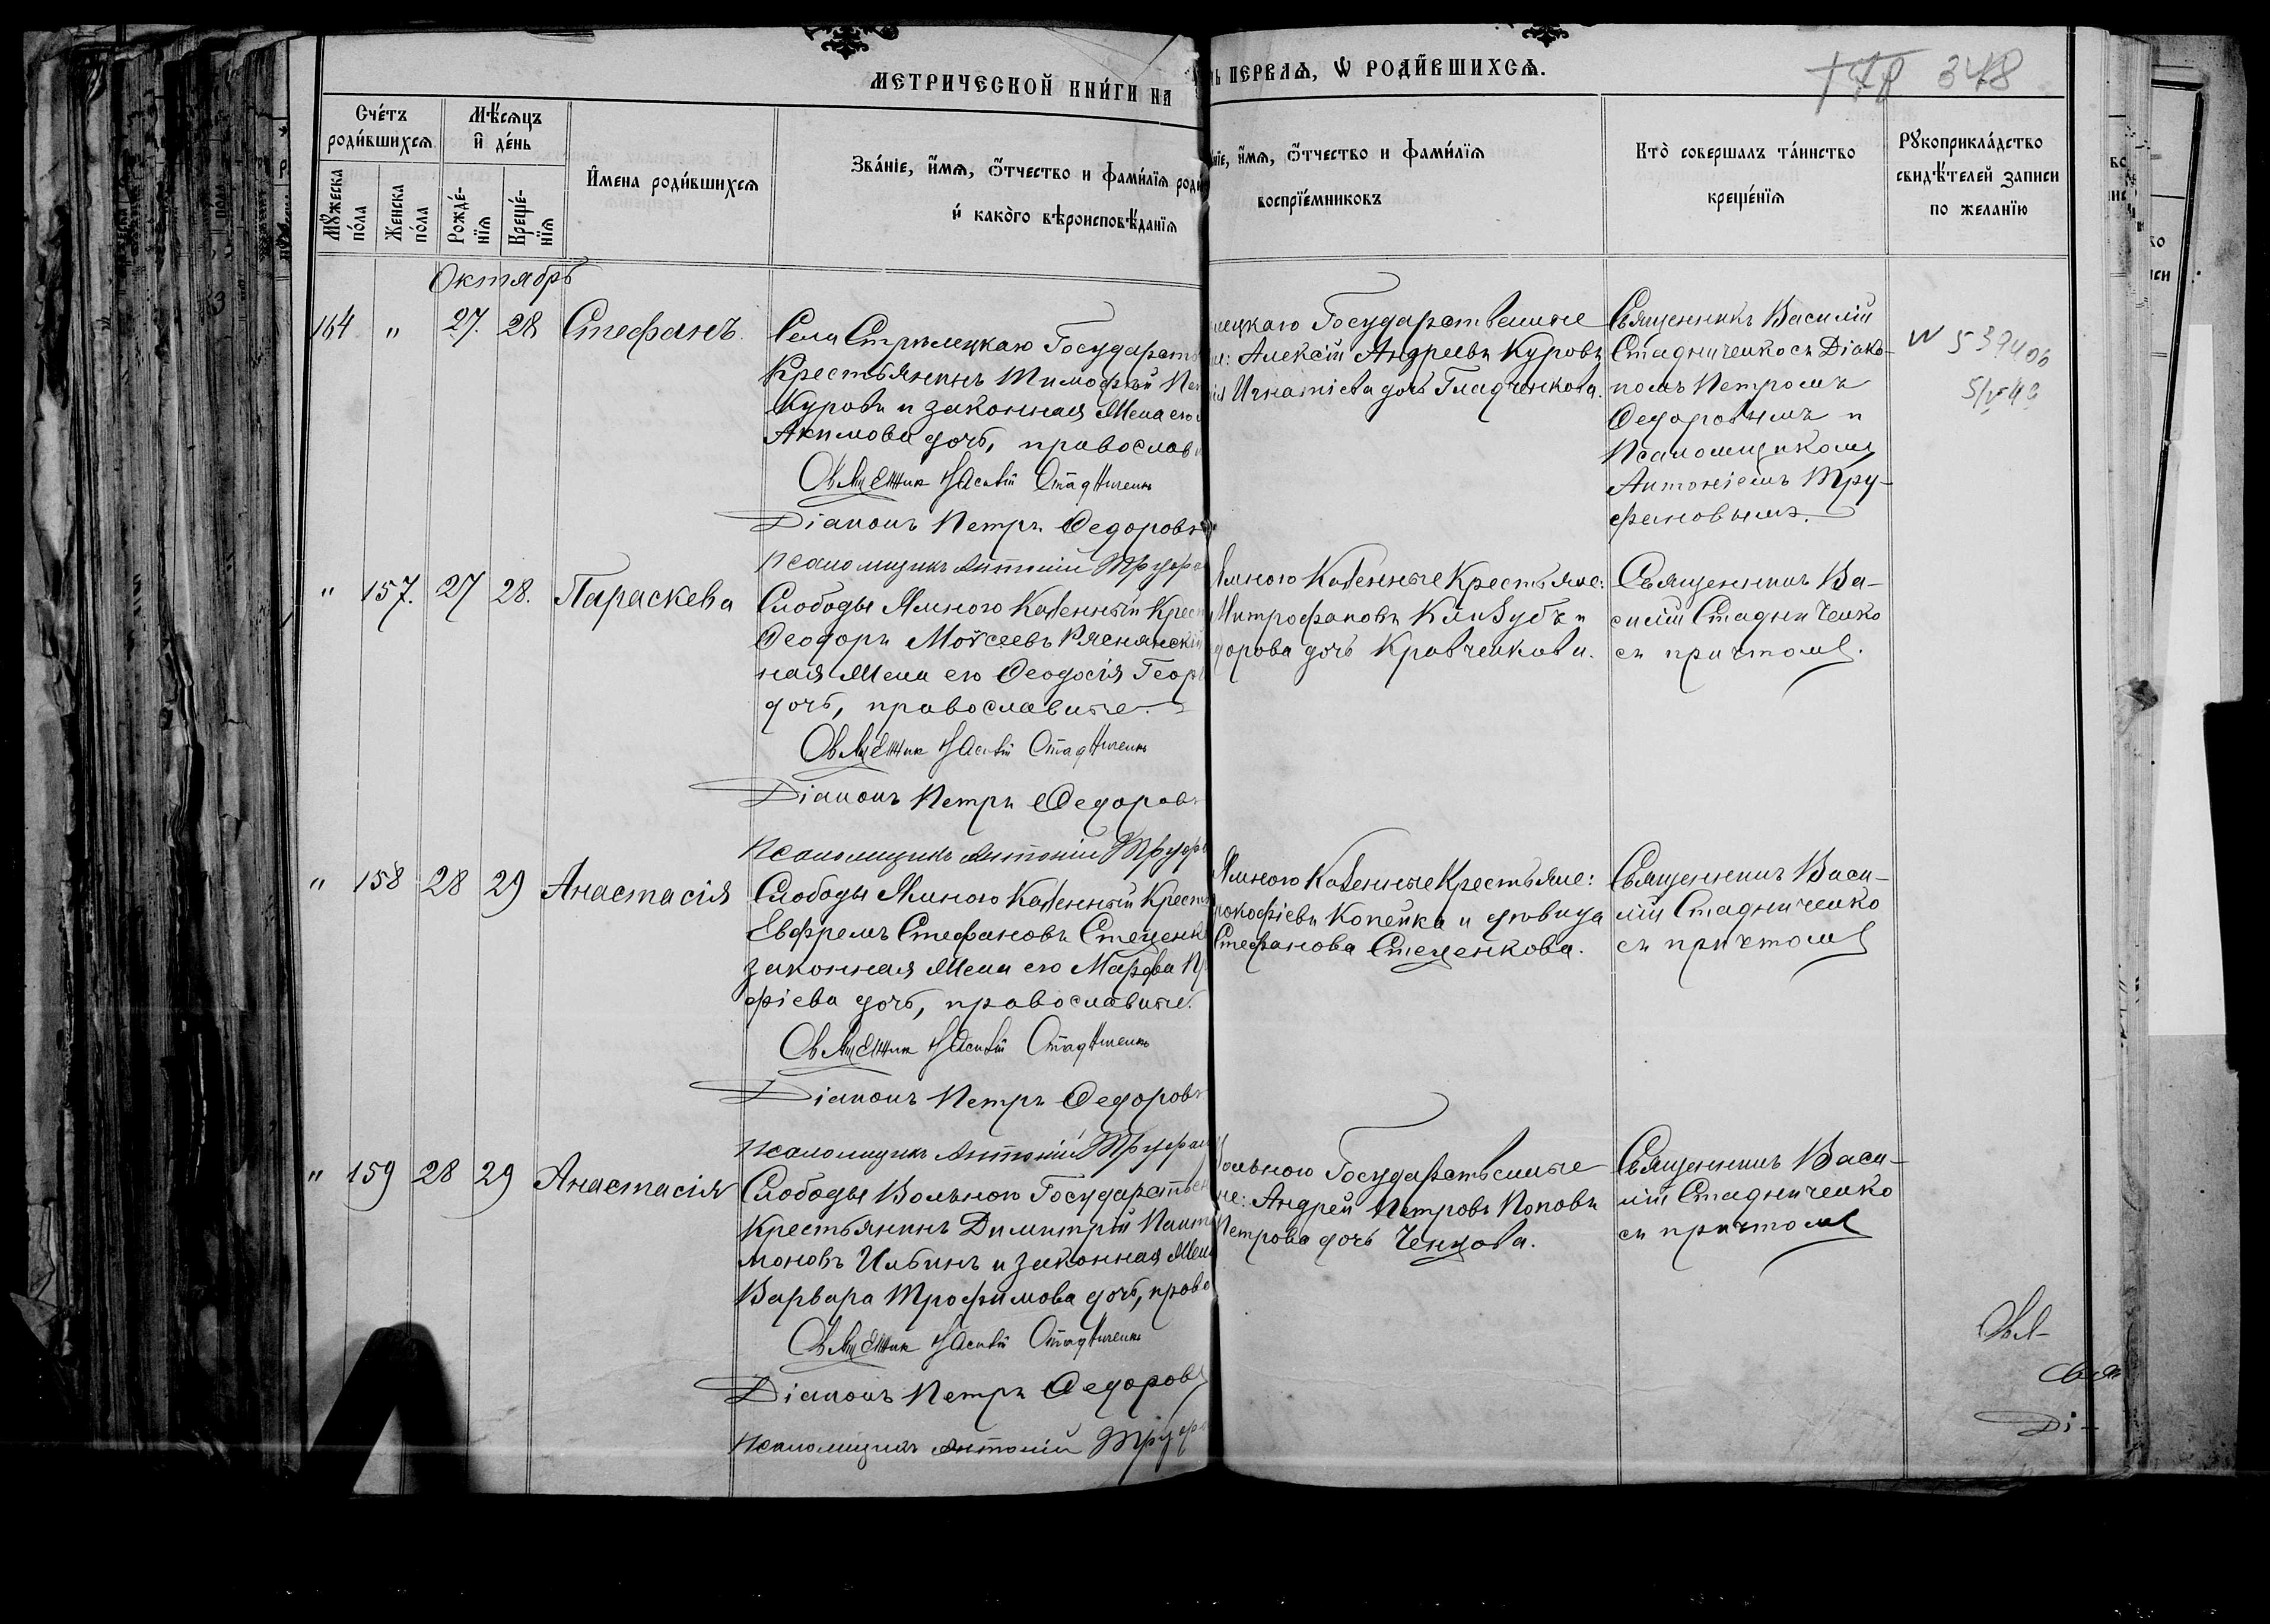 МЕТРИЧЕСКОЙ КНИ́ГИ НА
ПЕРВАѦ, Ѡ РОДИ́ВШИХСѦ.
348
Сче́тъ роди́вшихсѧ
Мꙋ́жеска по́ла
Же́нска по́ла
Мѣ́сѧцъ и҆ де́нь
Рожде́-нїѧ
Креще́-нїѧ
И҆мена роди́вшихсѧ
Зва́нїе, и҆́мѧ, ѻ҆́тчество и фами́лїѧ роди
и҆ како́гѡ вѣроисповѣ́данїѧ
нїе, и҆́мѧ, ѻ҆́тчество и фами́лїѧ
воспрїе́мниковъ
Кто̀ соверша́лъ та́инство
креще́нїѧ
Рꙋкоприкла́дство
свидѣ́телей записи
по жела́нїю
Октябрь
164 " 27. 28 Стефанъ.
Села Стрѣлецкаго Государств
Крестьянинъ Тимофѣй
Куровъ и законная жена его
Акимова дочь, православ
Священник Василій Стадниченко
Діаконъ Петръ Федоровъ
Псаломщикъ Антоній Труфа
лецкаго Государственные
не: Алексѣй Андреевъ Куровъ
Игнатіева дочь Гладченкова.
Священникъ Василій
Стадниченко съ Діако-
номъ Петромъ
Федоровымъ и
Псаломщикомъ
Антоніемъ Тру-
фановымъ.
" 157. 27 28. Параскева
Слободы Ямного Казенный Крест
Феодоръ Моѵсеевъ Ряснянскій
ная жена его Феодосія Геор
дочь, православные.
Священник Василій Стадниченко
Діаконъ Петръ Федоровъ
Псаломщикъ Антоній Труфа
Ямного Казенные Крестьяне:
Митрофановъ Клизубъ и
дорова дочь Кравченкова.
Священникъ Ва-
силій Стадниченко
съ причтомъ.
" 158 28 29 Анастасія
Слободы Ямного Казенный Крест
Евфремъ Стефановъ Стеценко
законная жена его Марфа Пр
фіева дочь, православные.
Священник Василій Стадниченко
Діаконъ Петръ Федоровъ
Псаломщикъ Антоній Труфан
Ямного Казенные Крестьяне:
рокофіевъ Копейка и дѣвица
Стефанова Стеценкова.
Священникъ Васи-
лій Стадниченко
съ причтомъ
" 159 28 29 Анастасія
Слободы Вольного Государствен
Крестьянинъ Димитрій Панте
моновъ Ильинъ и законная жена
Варвара Трофимова дочь, право
Священник Василій Стадниченко
Діаконъ Петръ Федоровъ
Псаломщикъ Антоній Труфа
Вольного Государственные
не: Андрей Петровъ Поповъ
Петрова дочь Ченцова.
Священникъ Васи-
лій Стадниченко
съ причтомъ
Свя-
Ді-